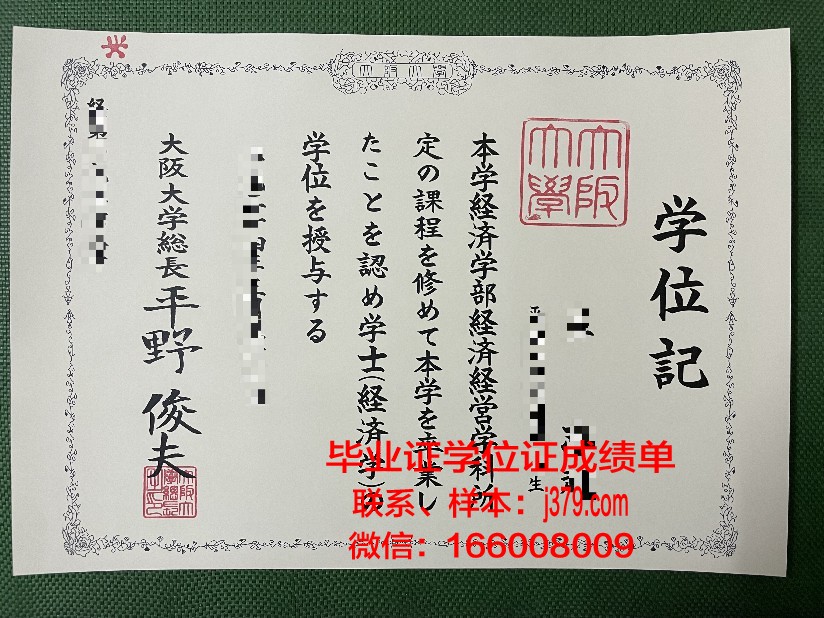 大阪大学
学位記
大阪
大學
生
本学経済学部経済経営学科所
定の課程を修めて本学を卒業し
たことを認め学士(経済学)の
学位を授与する
大阪大学総長 平野俊夫
毕业证学位证成绩单
联系、样本：j379.com
微信：166008009